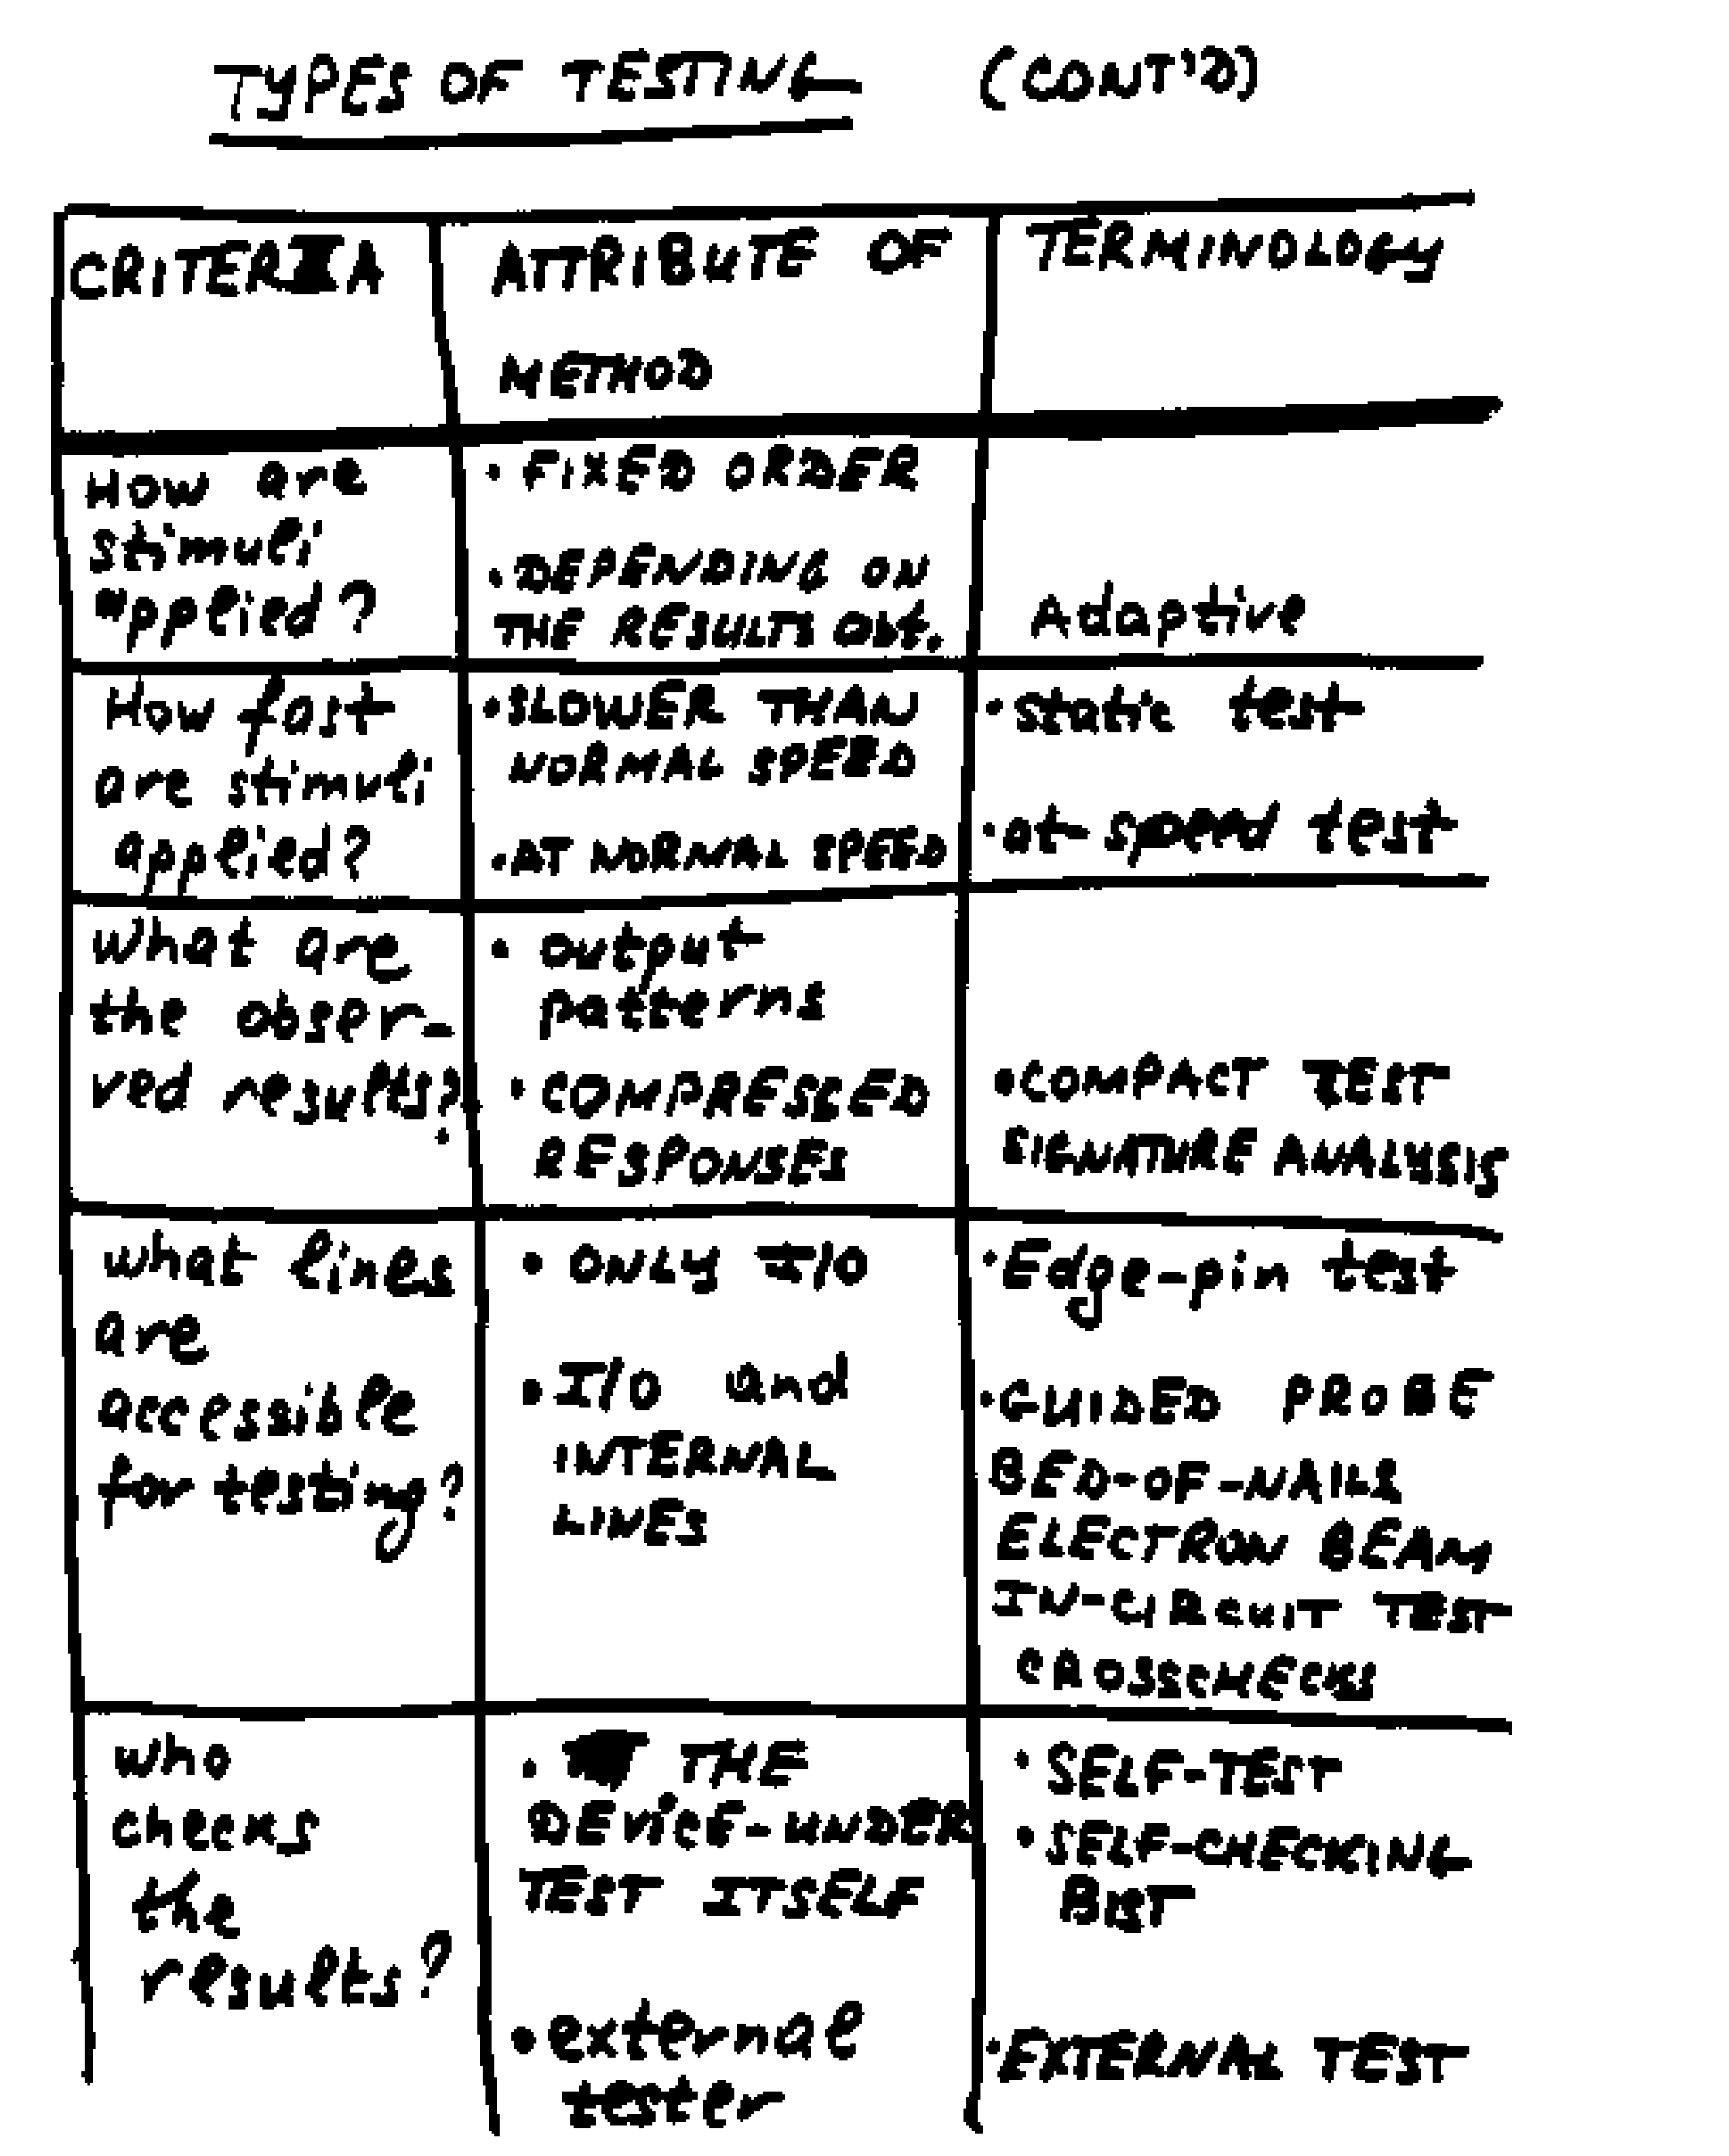 TYPES OF TESTING (CONT'D)
CRITERIA
ATTRIBUTE OF
METHOD
TERMINOLOGY
How are
stimuli
applied?
• FIXED ORDER
• DEPENDING ON
THE RESULTS Obt.
Adaptive
How fast
are stimuli
applied?
• SLOWER THAN
NORMAL SPEED
• AT NORMAL SPEED
• static test
• at-speed test
What are
the obser-
ved results?
• output
patterns
• COMPRESSED
RESPONSES
• COMPACT TEST
SIGNATURE ANALYSIS
what lines
are
accessible
for testing?
• ONLY I/O
• I/O and
INTERNAL
LINES
• Edge-pin test
• GUIDED PROBE
BED-OF-NAILS
ELECTRON BEAM
IN-CIRCUIT TEST
CROSSCHECKS
who
checks
the
results?
• THE
DEVICE-UNDER
TEST ITSELF
• external
tester
• SELF-TEST
• SELF-CHECKING
BIST
• EXTERNAL TEST